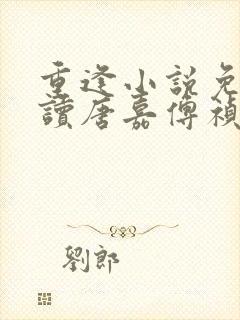 重逢小説免
讀唐嘉傅禎
劉郎